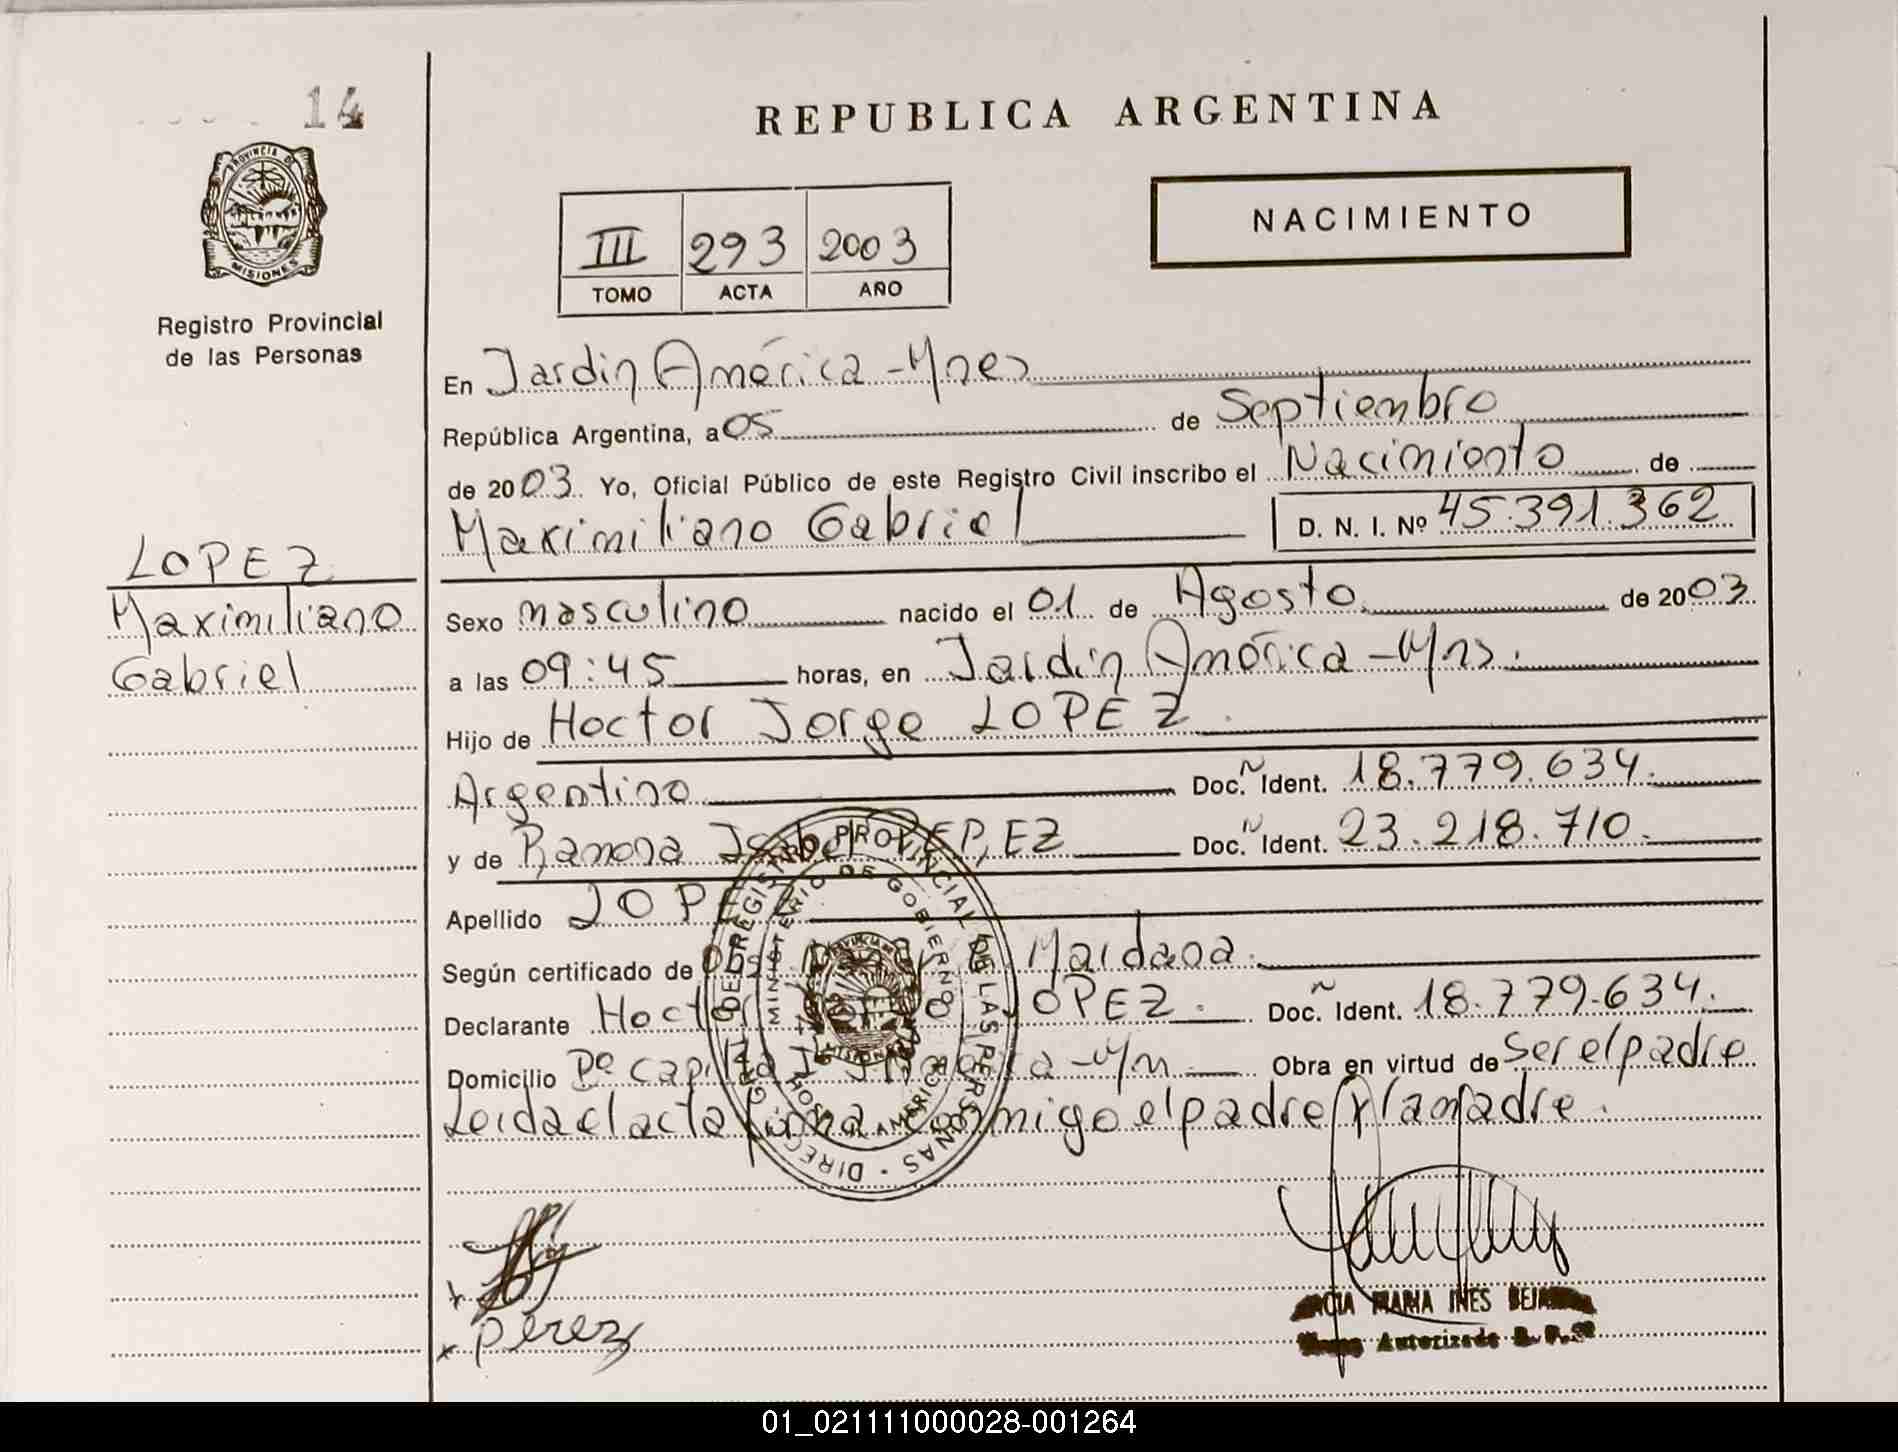 14
PROVINCIA DE
MISIONES
Registro Provincial
de las Personas
LOPEZ
Maximiliano
Gabriel
REPUBLICA ARGENTINA
NACIMIENTO
III 293 2003
TOMO ACTA AÑO
En Jardin América - Mnes
República Argentina, a 05 de Septiembre
de 2003. Yo, Oficial Público de este Registro Civil inscribo el Nacimiento de
Maximiliano Gabriel D. N. I. Nº 45.391.362
Sexo masculino nacido el 01 de Agosto de 2003
a las 09:45 horas, en Jardin América - Mns.
Hijo de Hector Jorge LOPEZ
Argentino Doc. Ident. 18.779.634.
y de Ramona Isabel PEREZ Doc. Ident. 23.218.710.
Apellido LOPEZ
Según certificado de Obs. Maidana.
Declarante Hector LOPEZ. Doc. Ident. 18.779.634.
Domicilio Bº Capilla Obra en virtud de ser el padre
Leida el acta firma conmigo el padre y la madre.
DIRECC. GRAL. DE REGISTRO PROVINCIAL DE LAS PERSONAS
MINISTERIO DE GOBIERNO
PROVINCIA DE
MISIONES
AMERICA
perez
MARIA INES
Autorizada
01_021111000028-001264